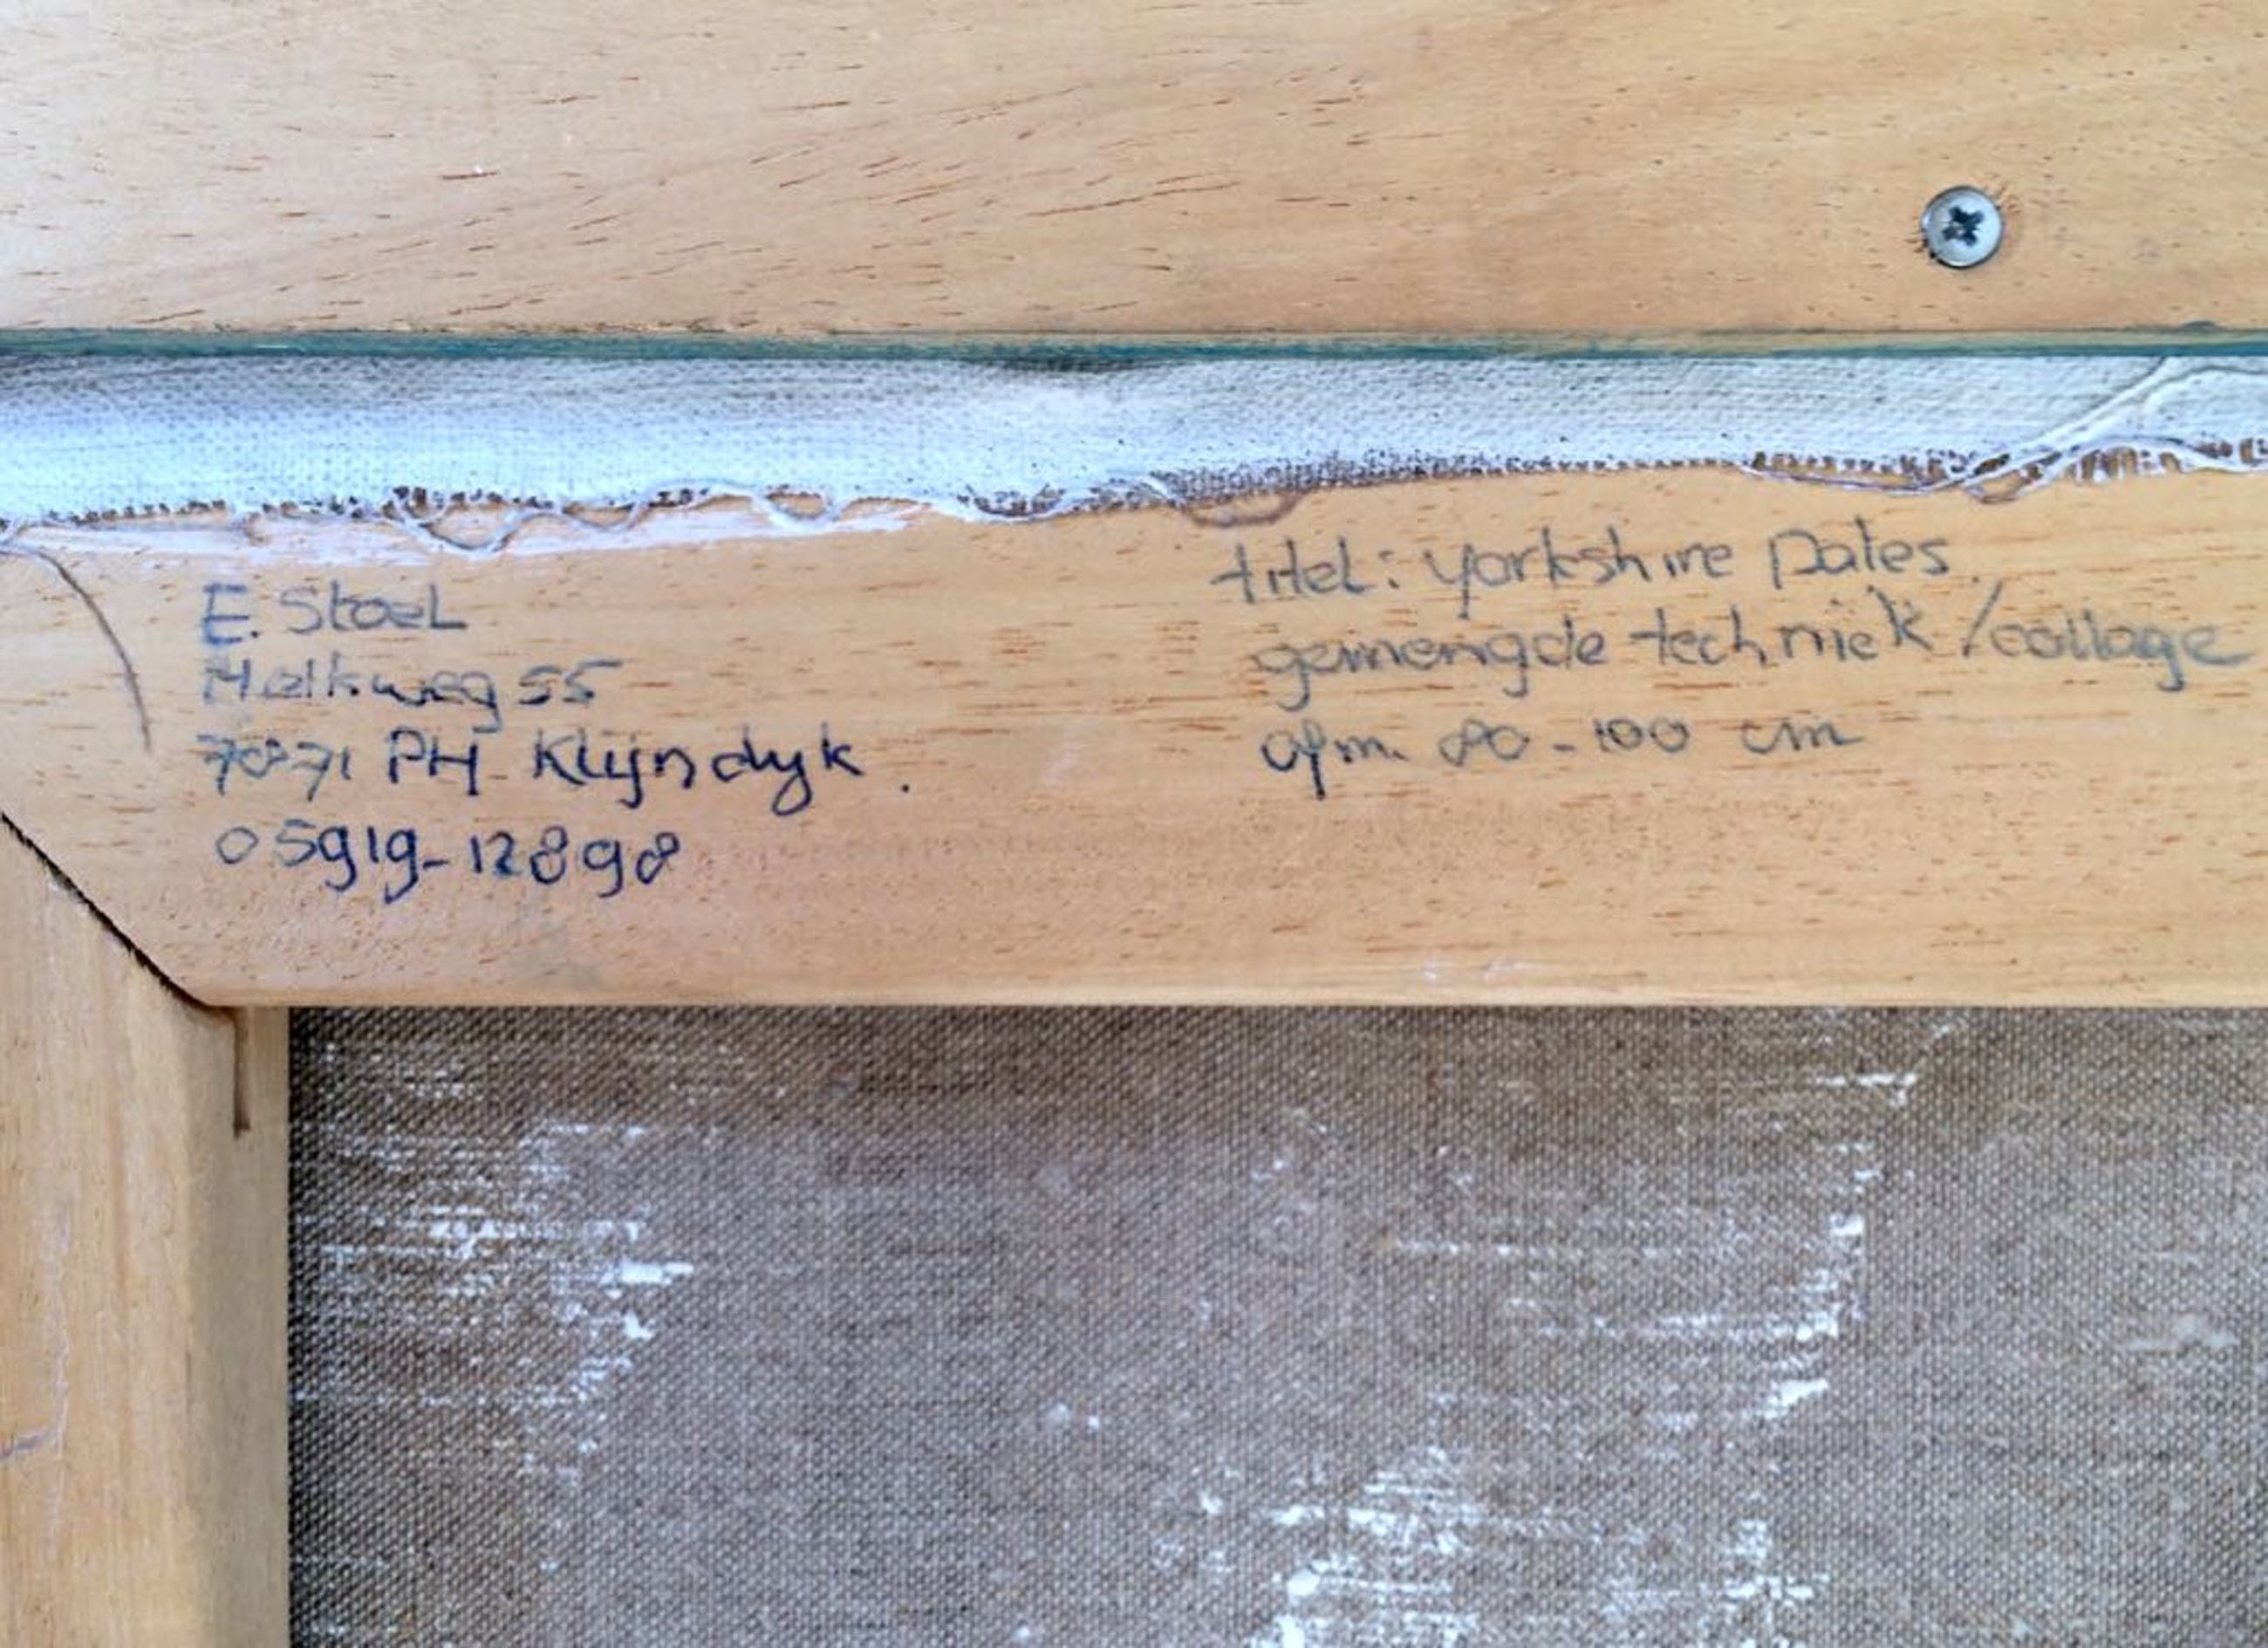 E. Stoel
Melkweg 55
7871 PH Klijndijk.
05919-12898
titel: Yorkshire Dales.
gemengde techniek / collage
afm. 80-100 cm